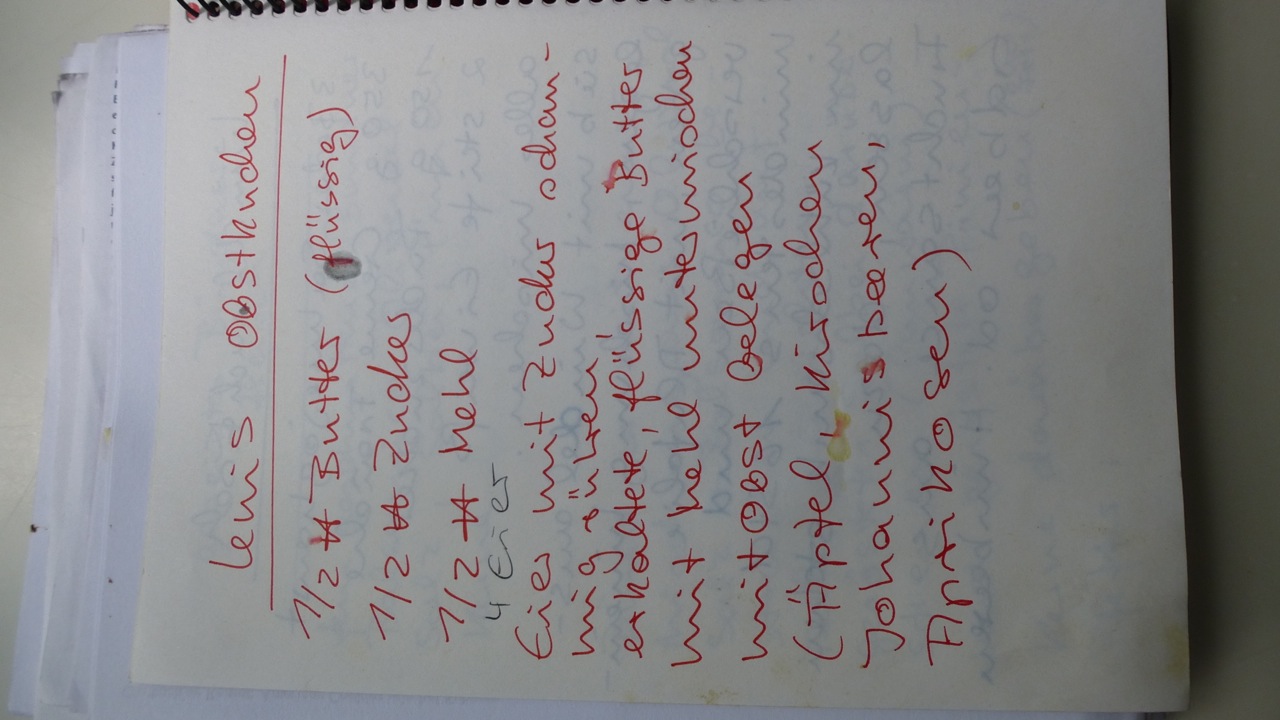 Lenis Obstkuchen
1/2 ℔ Butter (flüssig)
1/2 ℔ Zucker
1/2 ℔ Mehl
4 Eier
Eier mit Zucker schau-
mig rühren,
erkaltete, flüssige Butter
mit Mehl untermischen
mit Obst belegen
(Äpfel, Kirschen
Johannisbeeren,
Aprikosen)